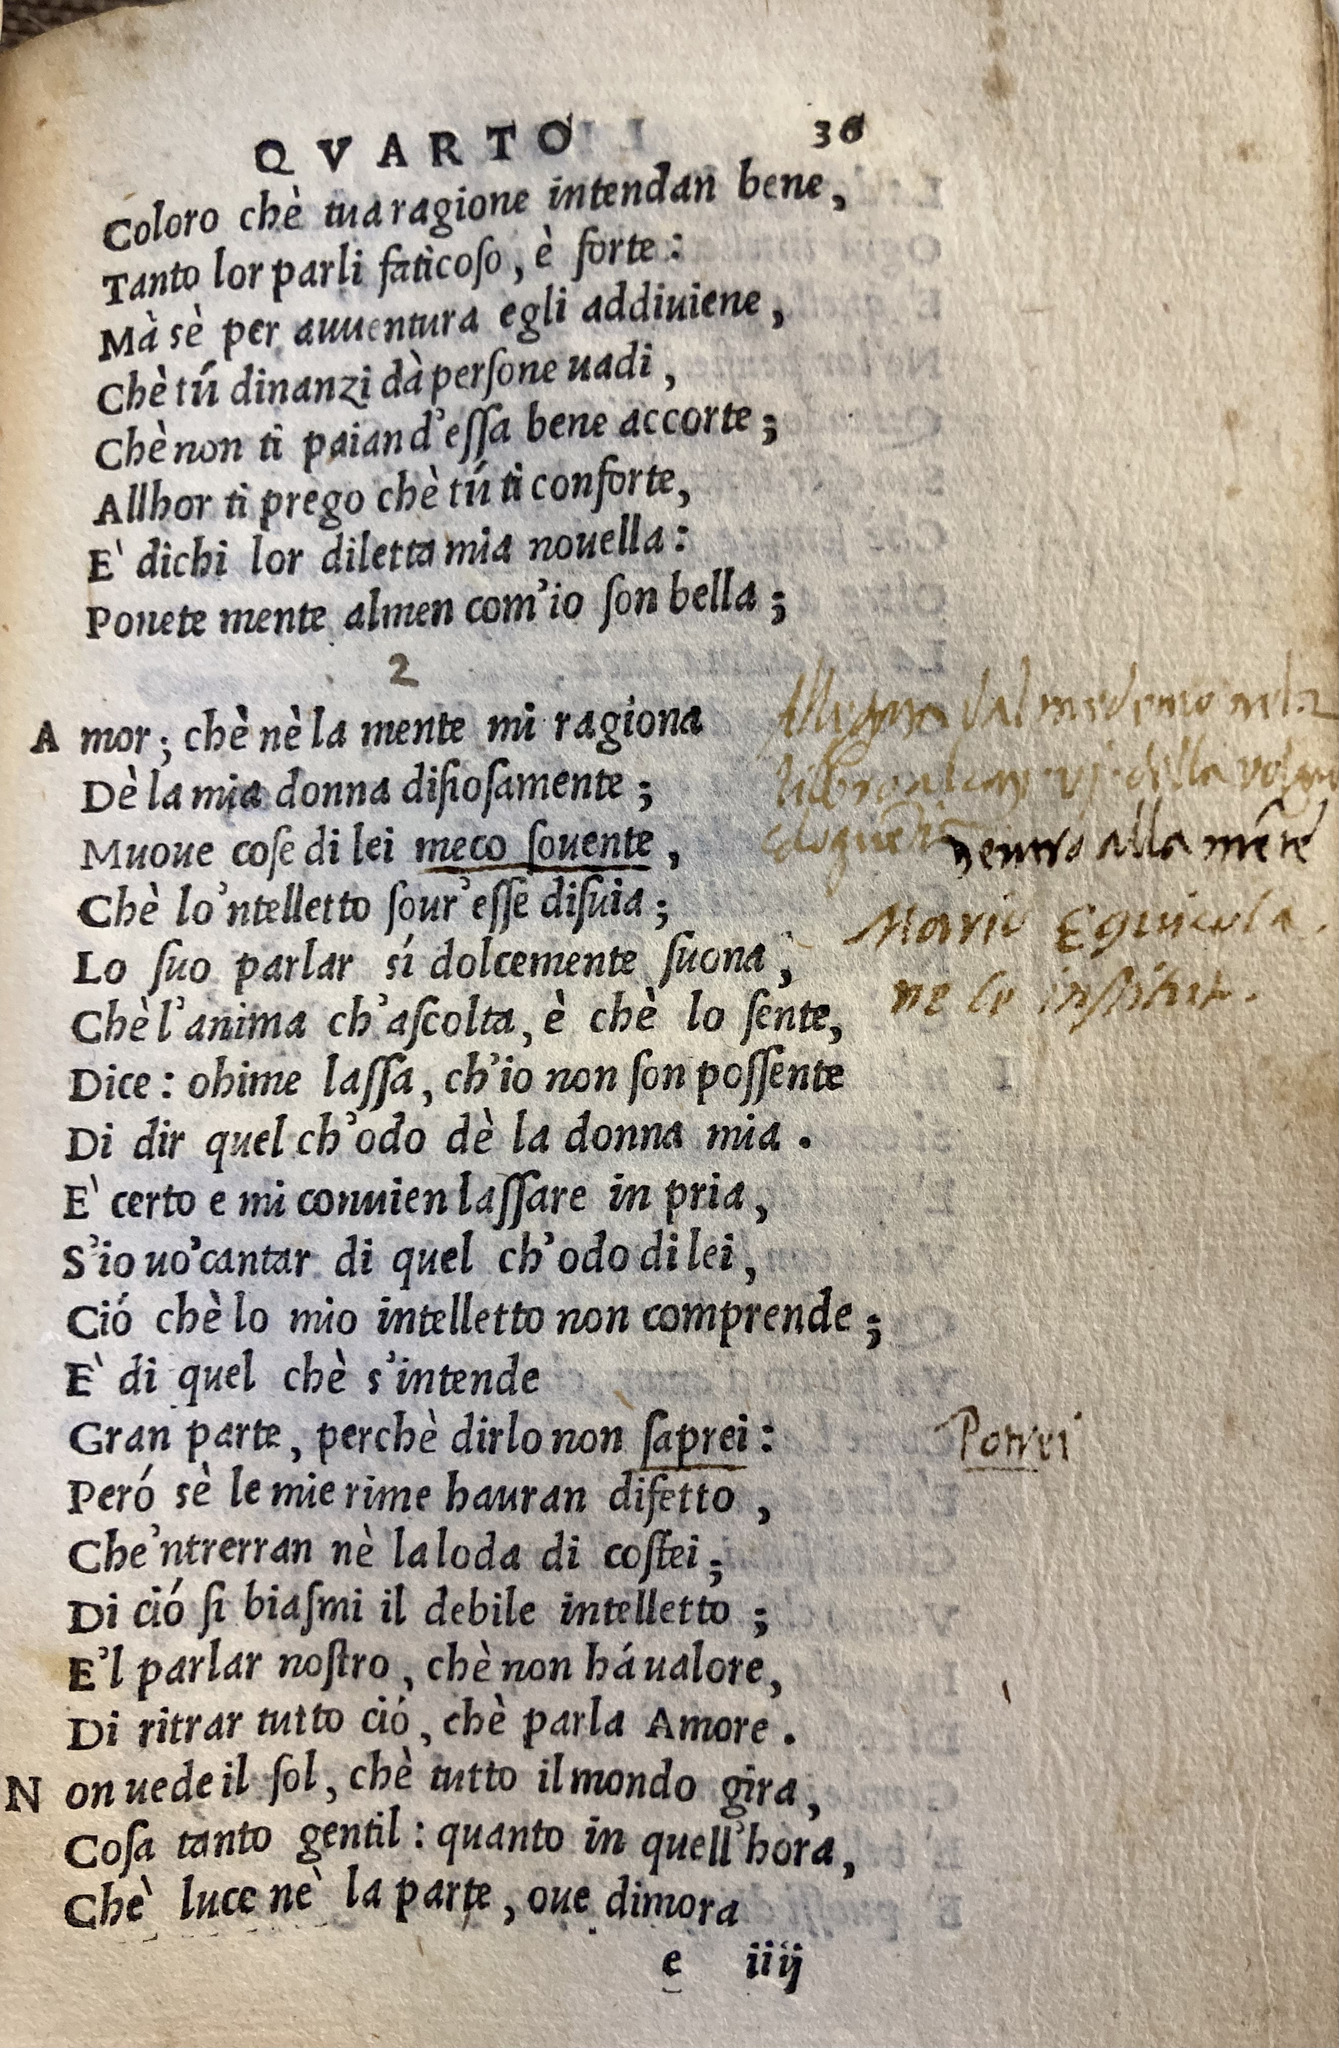 QVARTO 36
Coloro chè tua ragione intendan bene,
Tanto lor parli faticoſo, è forte:
Mà sè per auuentura egli addiuiene,
Chè tú dinanzi dà perſone uadi,
Chè non ti paian d'eſſa bene accorte;
Allhor ti prego chè tú ti conforte,
E' dichi lor diletta mia nouella:
Ponete mente almen com'io ſon bella;
2
Amor; chè nè la mente mi ragiona
Dè la mia donna diſioſamente;
Muoue coſe di lei meco ſouente,
Chè lo'ntelletto ſour'eſſe diſuia;
Lo ſuo parlar sí dolcemente ſuona,
Chè l'anima ch'aſcolta, è chè lo ſente,
Dice: ohime laſſa, ch'io non ſon poſſente
Di dir quel ch'odo dè la donna mia.
E' certo e mi conuien laſſare in pria,
S'io uo'cantar di quel ch'odo di lei,
Ció chè lo mio intelletto non comprende;
E' di quel chè s'intende
Gran parte, perchè dirlo non ſaprei:
Peró sè le mie rime hauran difetto,
Che'ntrerran nè la loda di coſtei;
Di ció ſi biaſmi il debile intelletto;
E'l parlar noſtro, chè non há ualore,
Di ritrar tutto ció, chè parla Amore.
Non uede il ſol, chè tutto il mondo gira,
Coſa tanto gentil: quanto in quell'hora,
Chè luce nè la parte, oue dimora
e iiij
dal medemo nel 2
libro al cap vj della volgar
eloquenti
dentro alla mẽte
Mario Equicola.
ne le inſtitut.
Potrei